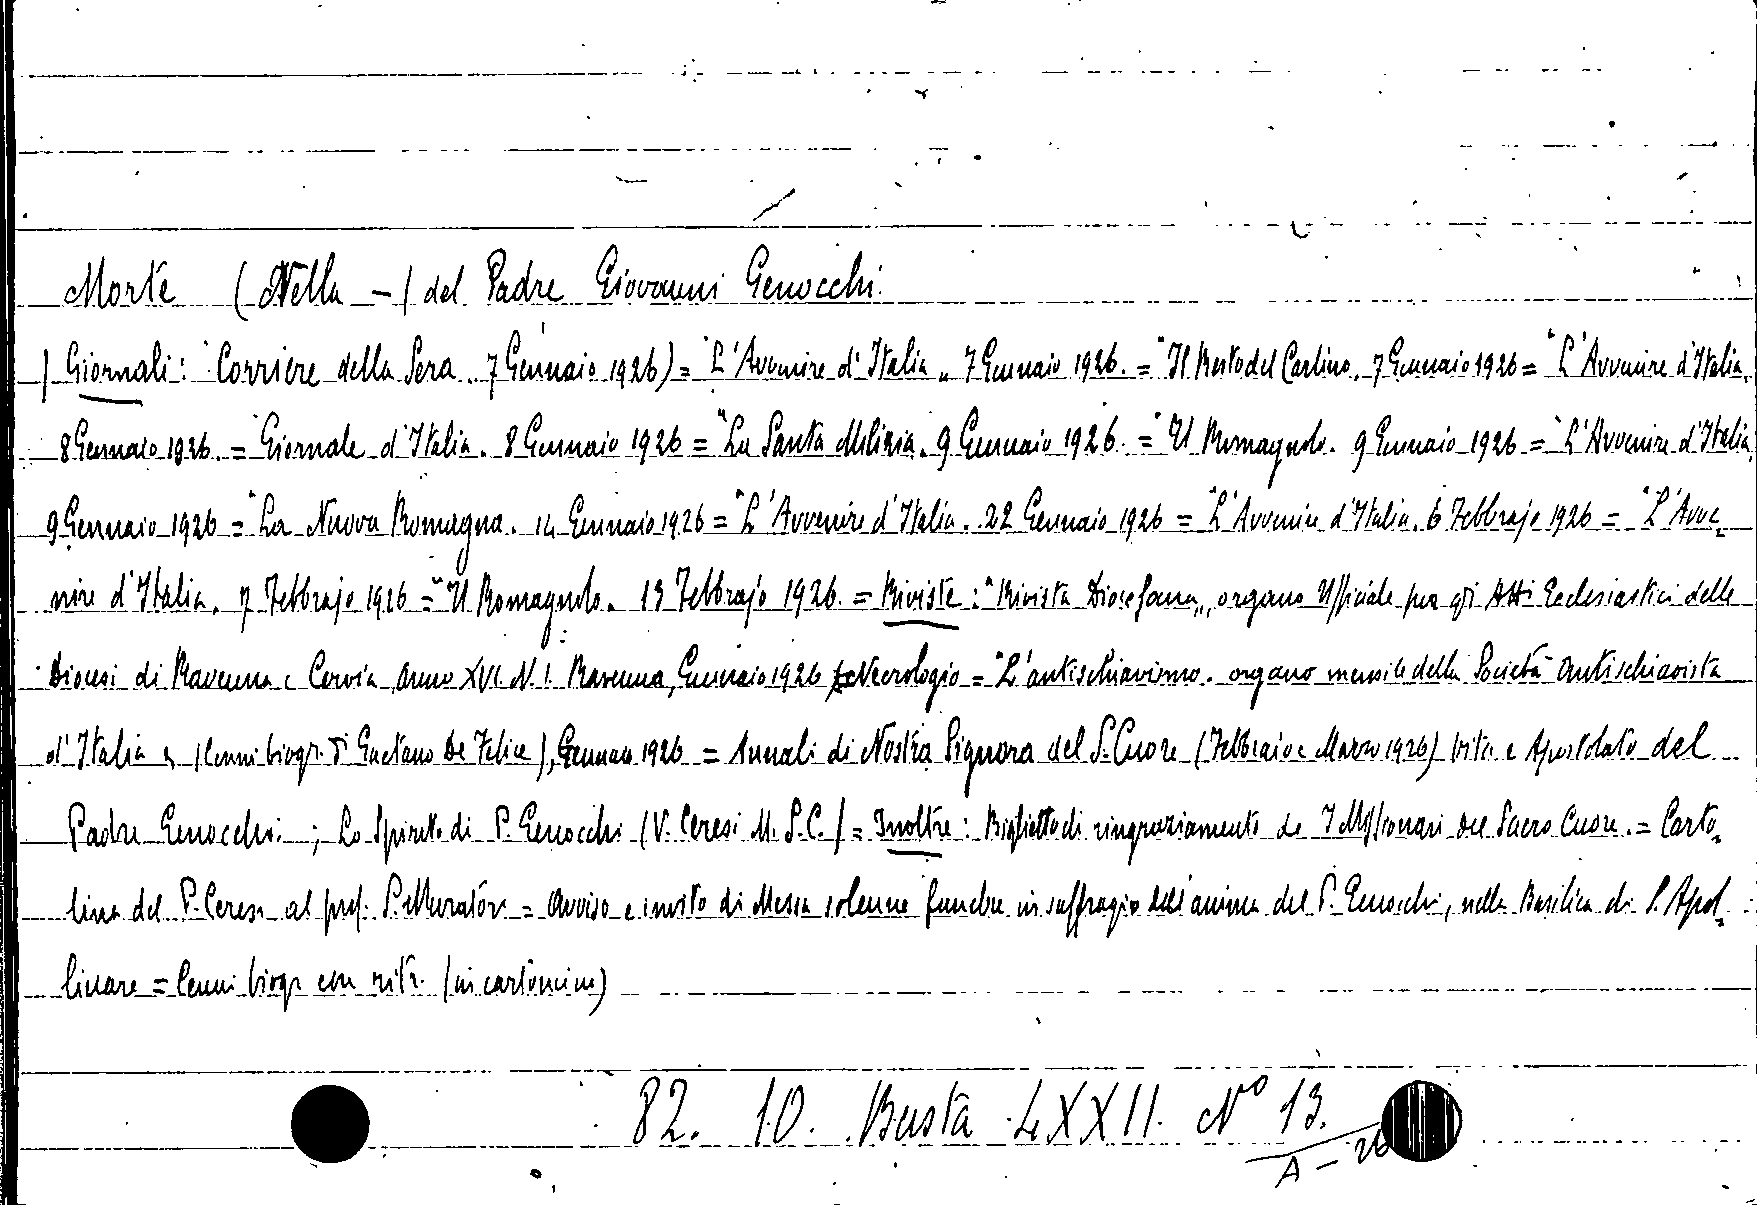 Morte (Nella -) del Padre Giovanni Genocchi.
/ Giornali: "Corriere della Sera„ 7 Gennaio 1926) = "L'Avvenire d'Italia„ 7 Gennaio 1926. = "Il Resto del Carlino„ 7 Gennaio 1926 = "L'Avvenire d'Italia„
8 Gennaio 1926. = "Giornale d'Italia„ 8 Gennaio 1926 = "La Santa Milizia„ 9 Gennaio 1926. = "Il Romagnolo„ 9 Gennaio 1926 = "L'Avvenire d'Italia„
9 Gennaio 1926 = "La Nuova Romagna„ 14 Gennaio 1926 = "L'Avvenire d'Italia„ 22 Gennaio 1926 = "L'Avvenire d'Italia„ 6 Febbrajo 1926 = "L'Avve=
nire d'Italia„ 7 Febbrajo 1926 = "Il Romagnolo„ 13 Febbrajo 1926. = Riviste: "Rivista Diocesana„ organo Ufficiale per gli Atti Ecclesiastici delle
Diocesi di Ravenna e Cervia Anno XVI. N. 1. Ravenna, Gennaio 1926 Necrologio = "L'antischiavismo„ organo mensile della Società antischiavista
d'Italia„ (Cenni biogr. di Gaetano De Felice), Gennaio 1926 = Annali di Nostra Signora del S. Cuore (Febbraio e Marzo 1926) Vita e Apostolato del
Padre Genocchi ; Lo Spirito di P. Genocchi (V. Ceresi M. S. C.) = Inoltre: Biglietto di ringraziamento de I Missionari del Sacro Cuore. = Carto=
lina del P. Ceresi al prof. S. Muratori = Avviso e invito di Messa solenne funebre in suffragio dell'anima del P. Genocchi, nella Basilica di S. Apol=
linare = Cenni biogr. con ritr. (in cartoncino)
82. 10. Busta LXXII. N° 13.
A - 26